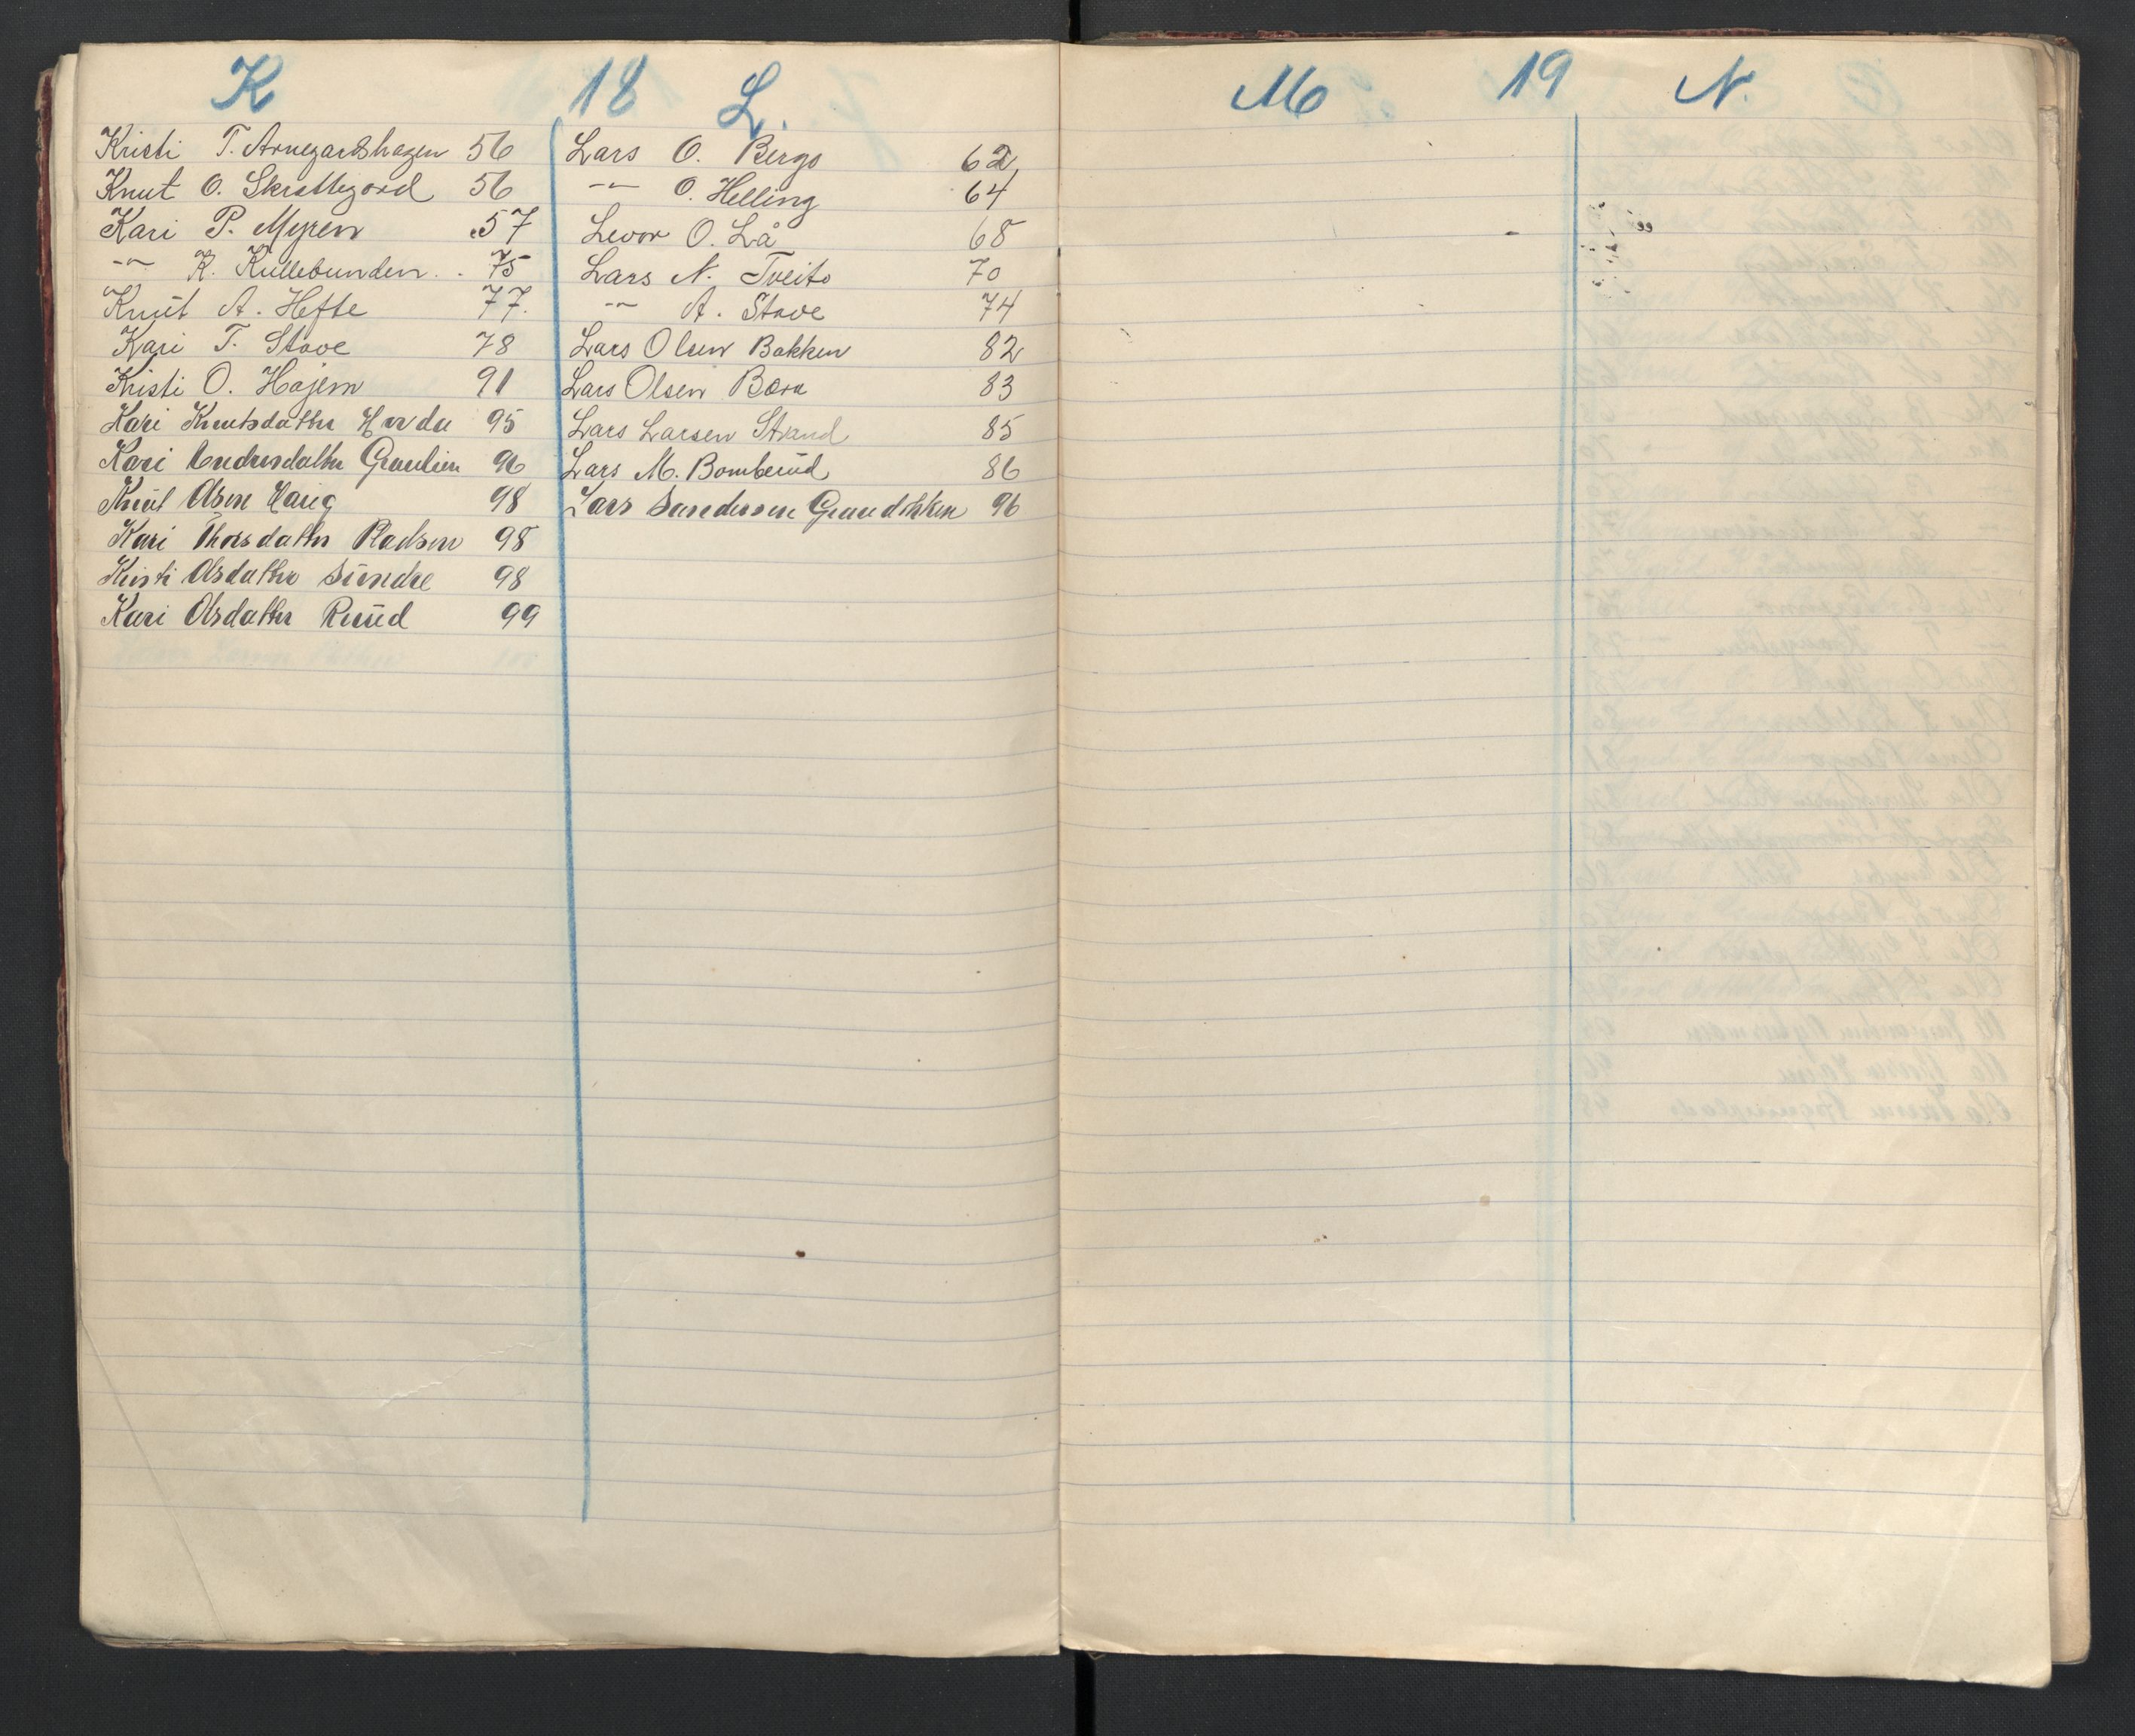 K
Kristi T. Arnegardshagen 56
Knut O. Skrattegord 56
Kari P. Myren 57
-"- K. Kullebunden 75
Knut A. Hefte 77.
Kari T. Stave 78
Kristi O. Hajem 91
Kari Knutsdatter 95
Kari 96
Knut Olsen Haug 98
Kari Thorsdatter Pladsen 98
Kristi Olsdatter Sundre 98
Kari Olsdatter Ruud 99
18
L.
Lars O. Bergo 62
-"- O. Helling 64
Levor O. Lå 68
Lars N. Tveito 70
-"- A. Stave 74
Lars Olsen Bakken 82
Lars Olsen Bæra 83
Lars Larsen Strand 85
Lars M. Bomberud 86
Lars 96
M
19
N.